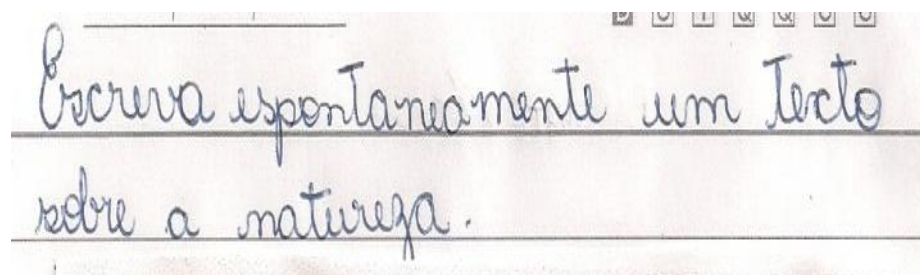 Escreva espontaneamente um Texto
sobre a natureza.